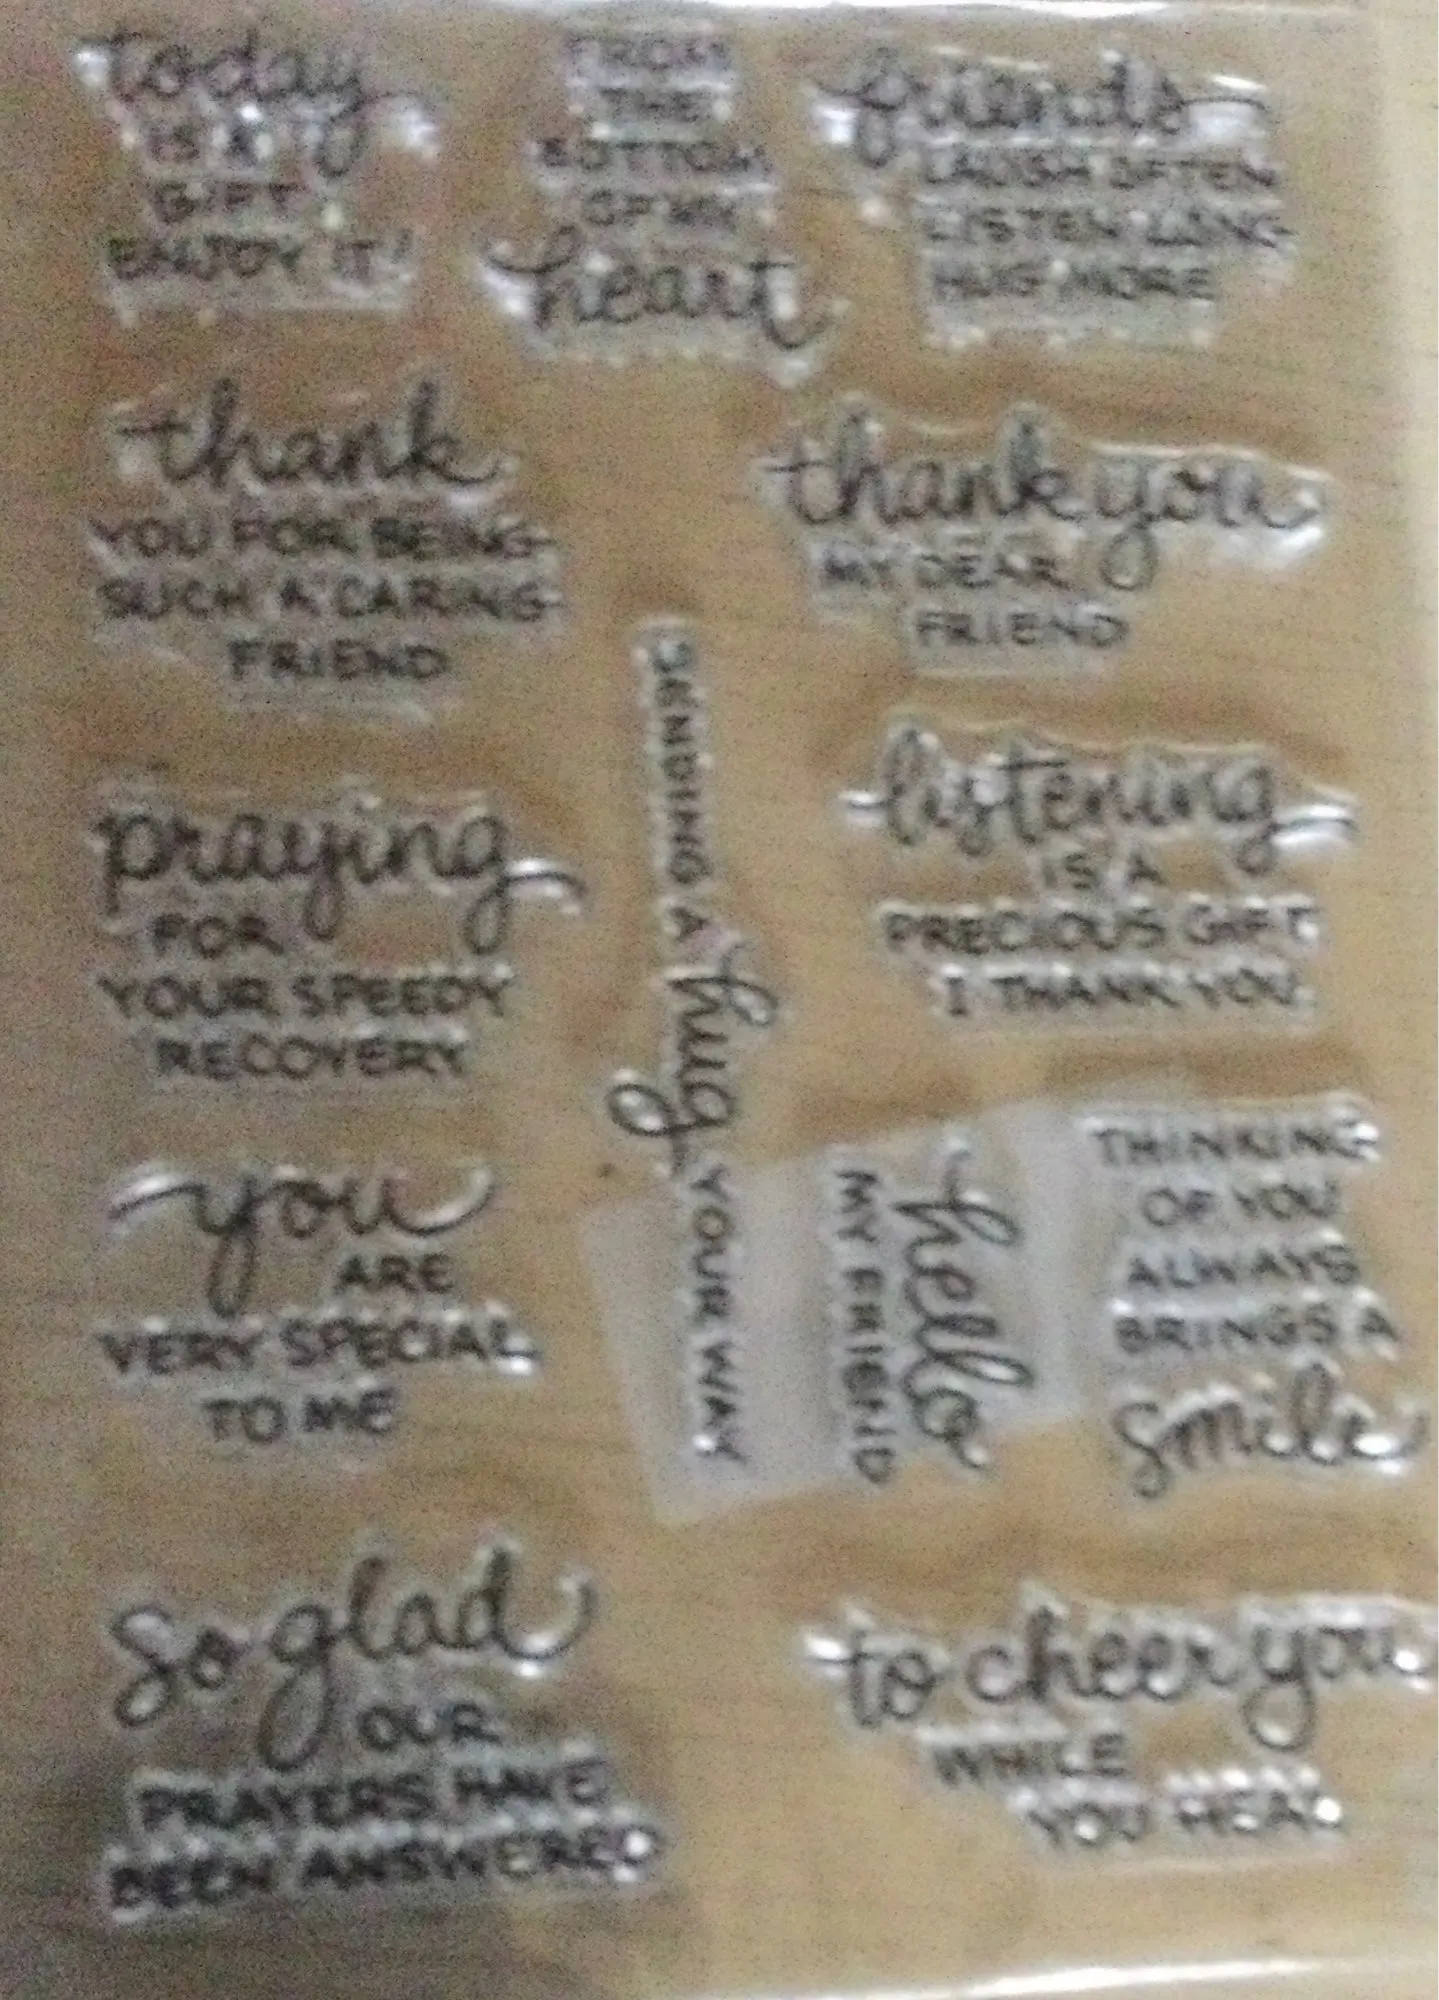 today
IS A
GIFT
ENJOY IT!
FROM
THE
BOTTOM
OF MY
heart
friends
LAUGH OFTEN
LISTEN LONG
HUG MORE
thank
YOU FOR BEING
SUCH A CARING
FRIEND
thank you
MY DEAR
FRIEND
praying
FOR
YOUR SPEEDY
RECOVERY
SENDING A hug YOUR WAY
listening
IS A
PRECIOUS GIFT
I THANK YOU
you
ARE
VERY SPECIAL
TO ME
hello
MY FRIEND
THINKING
OF YOU
ALWAYS
BRINGS A
smile
so glad
OUR
PRAYERS HAVE
BEEN ANSWERED
to cheer you
WHILE
YOU HEAL